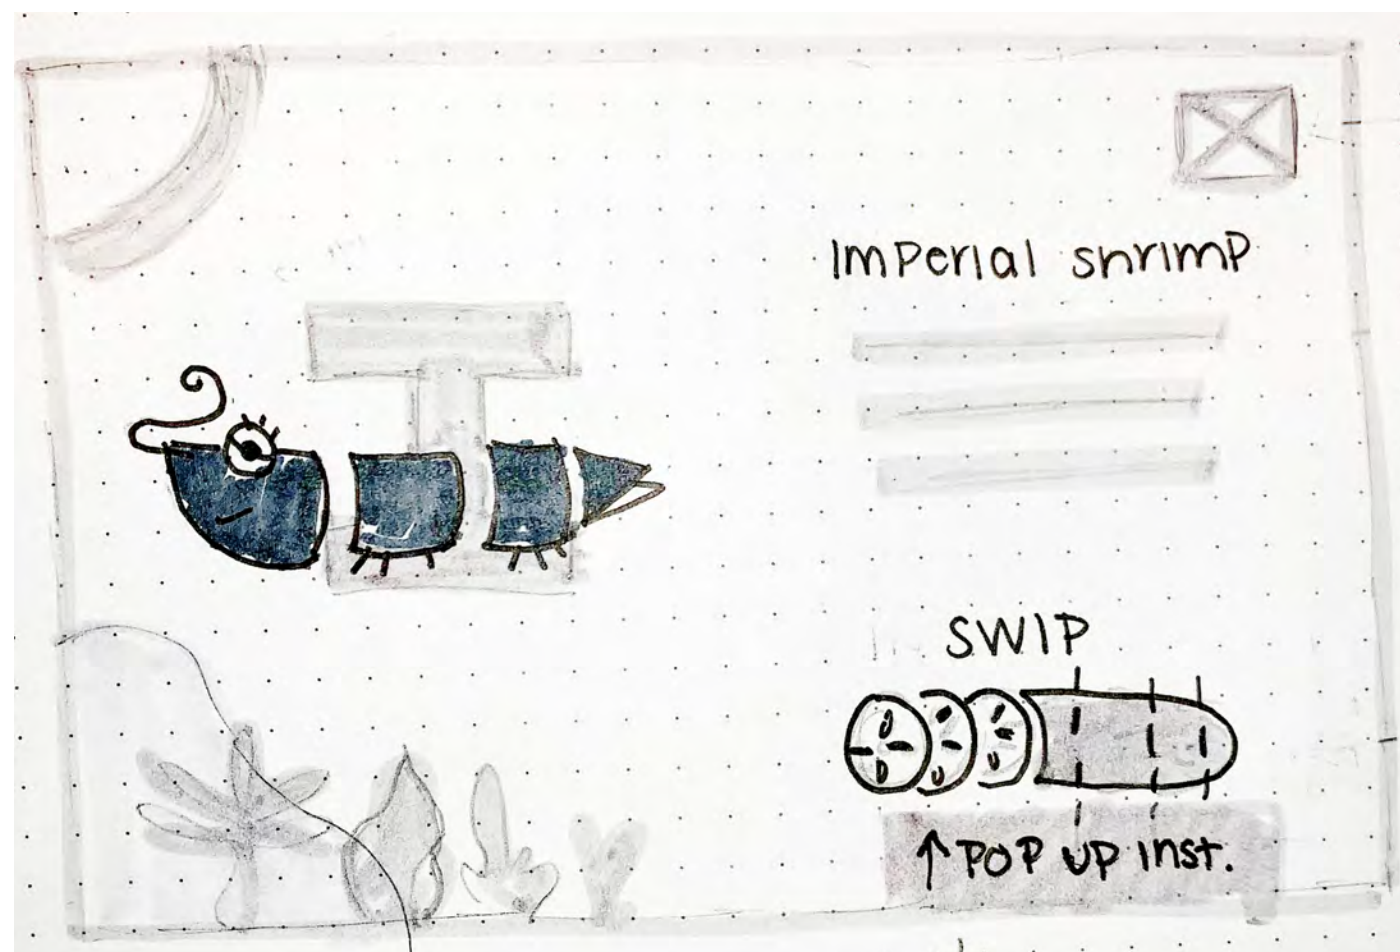 Imperial shrimp
SWIP
↑ POP UP inst.